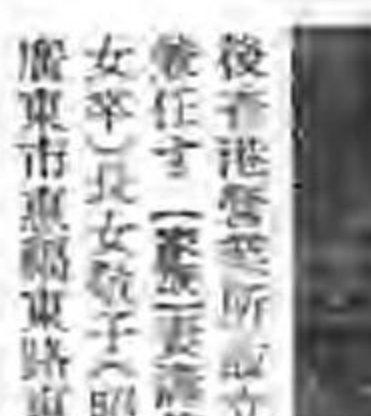 後香港營業所設立
任す【家族】妻
女卒）長女敬子（昭
廣東市惠福東路